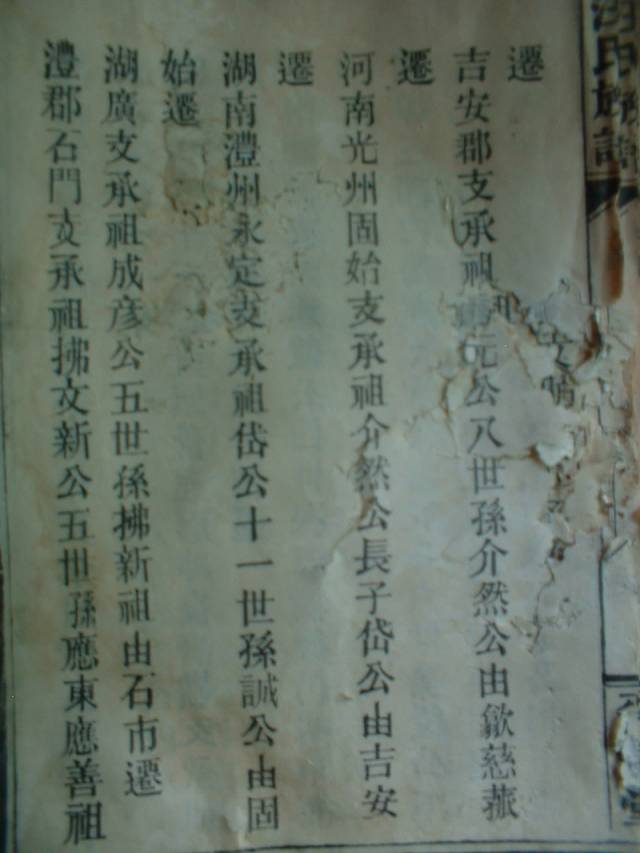 氏族譜
吉安郡支承祖元公八世孫介然公由歙慈菰
遷
河南光州固始支承祖介然公長子岱公由吉安
遷
湖南澧州永定支承祖岱公十一世孫誠公由固
始遷
湖廣支承祖成彦公五世孫拂新祖由石市遷
澧郡石門支承祖拂文新公五世孫應東應善祖